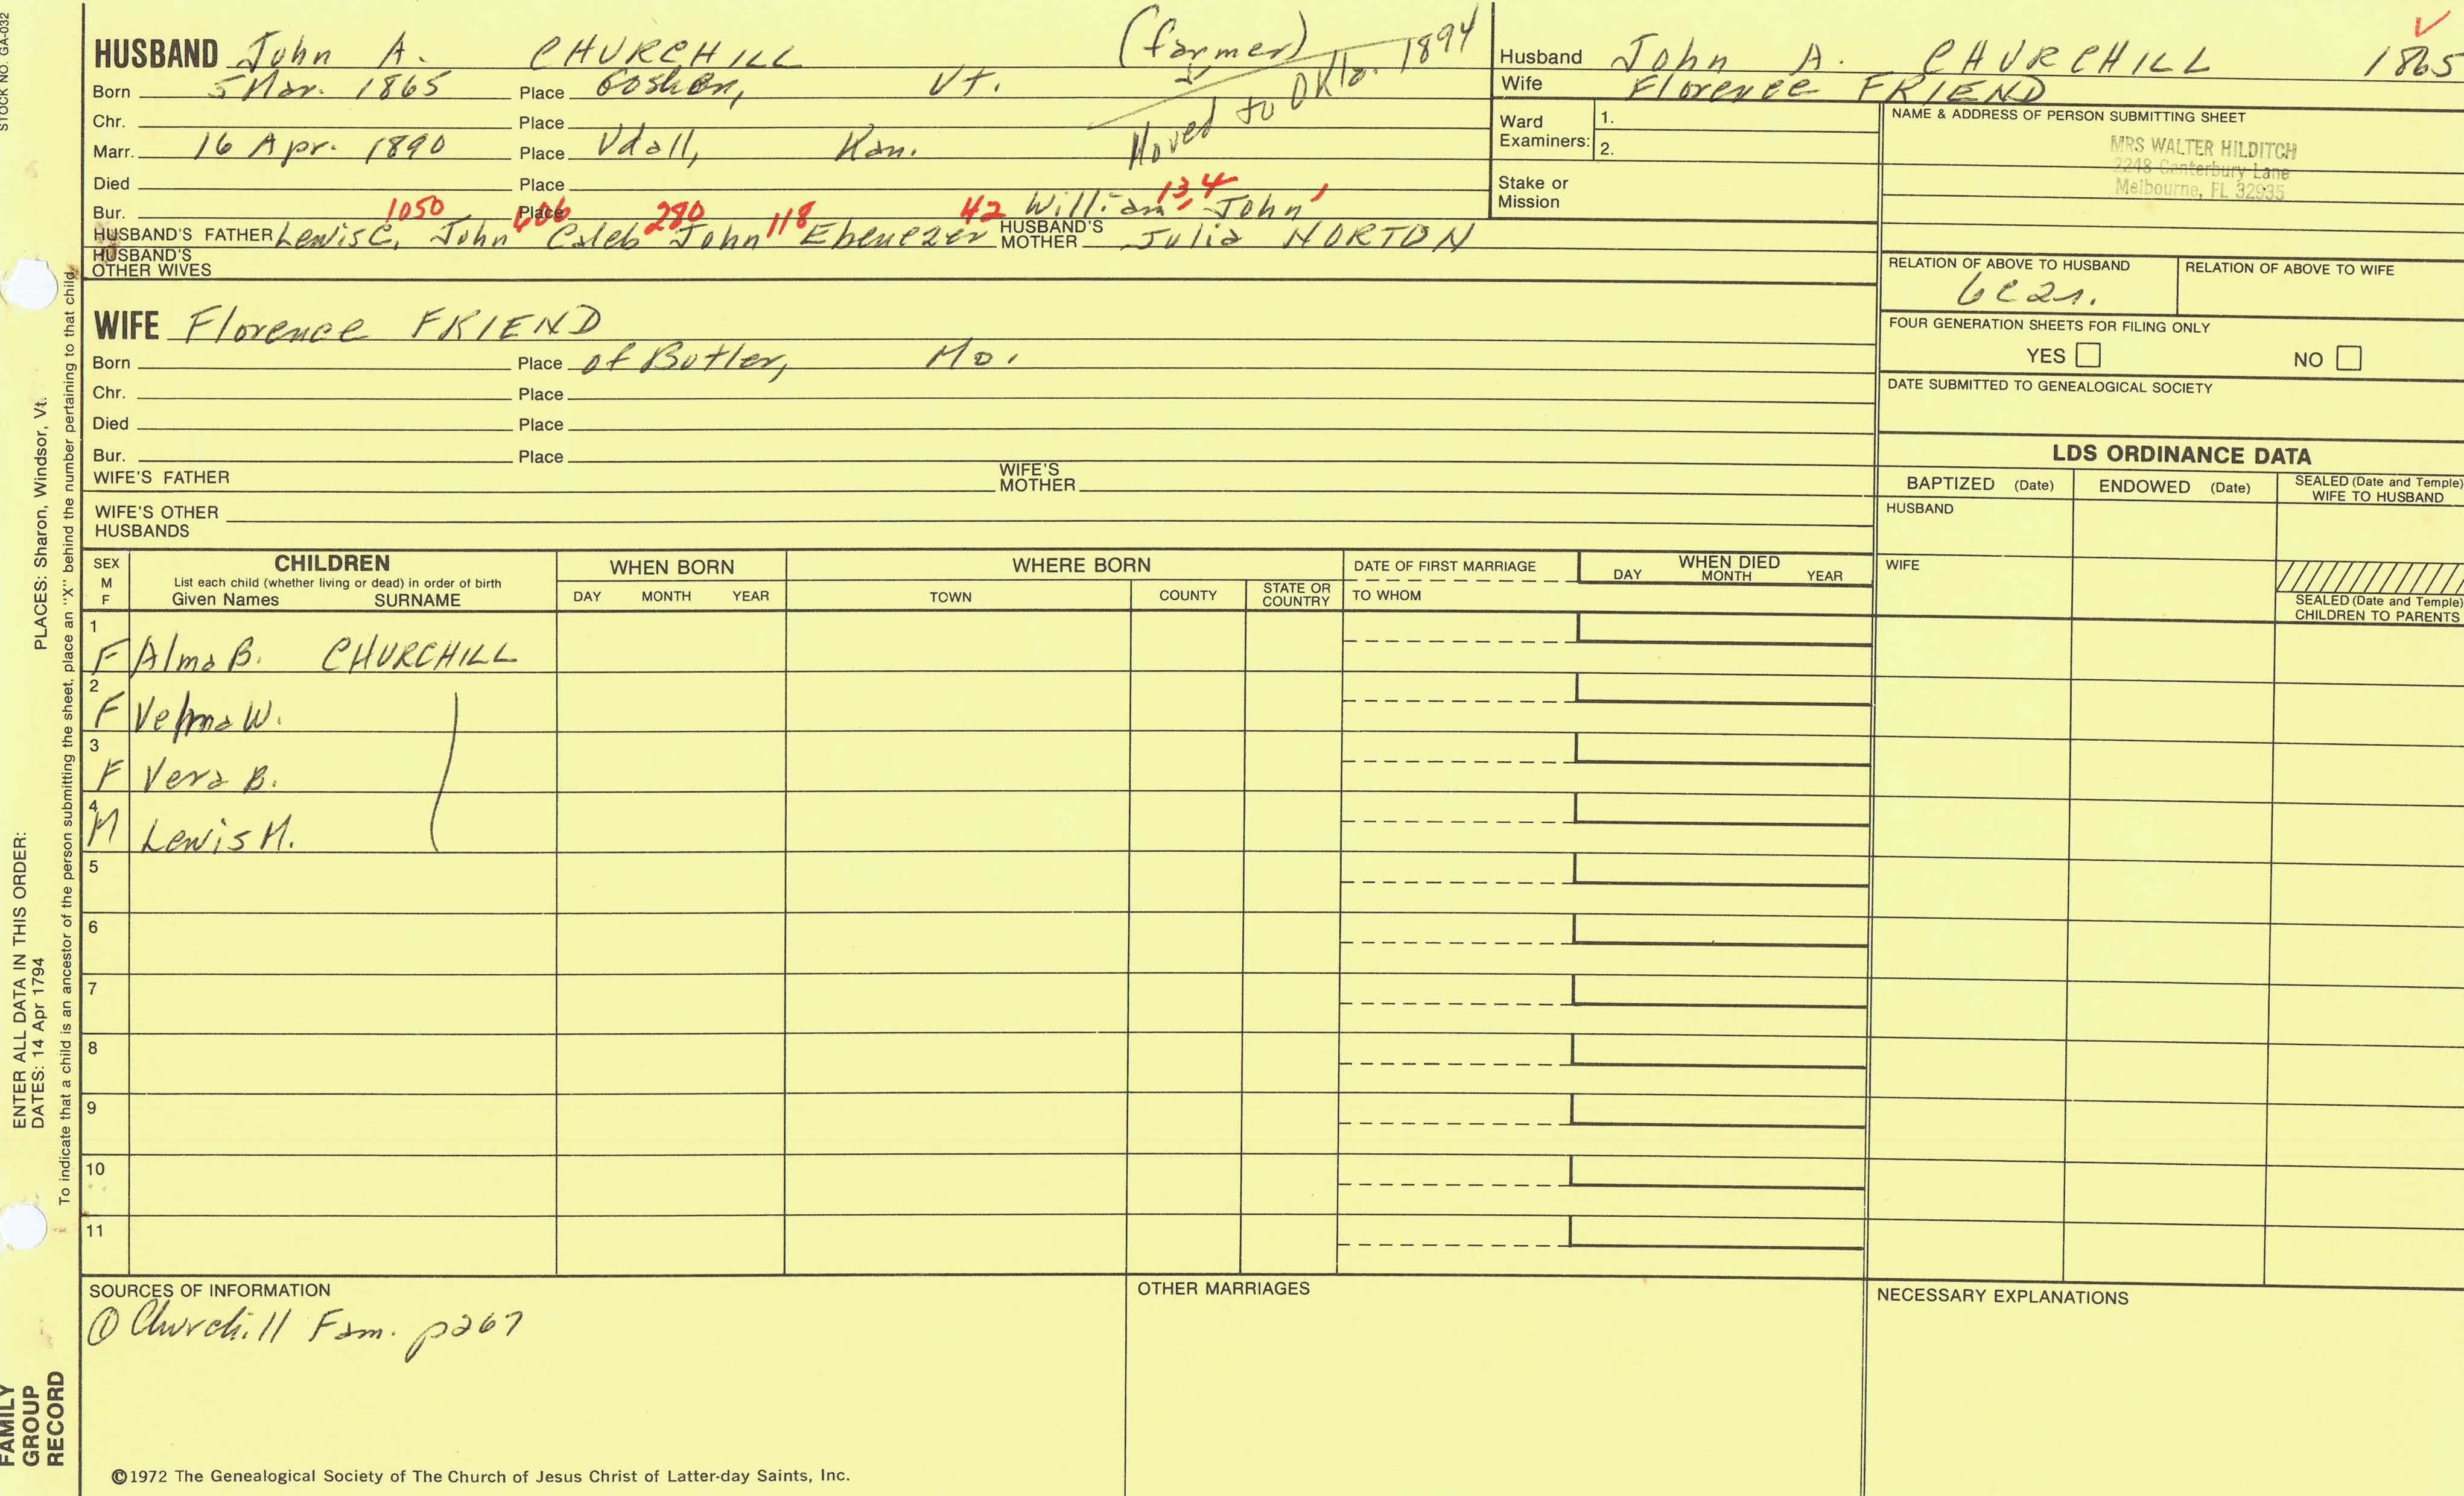 STOCK NO. GA-032
HUSBAND John A. CHURCHILL (farmer)
Born 5 Mar. 1865 Place Goshen, Vt. Moved to Okla. 1894
Chr. Place
Marr. 16 Apr. 1890 Place Udall, Kan.
Died Place
Bur. Place
1050 606 280 118 42 13, 4
William, John
HUSBAND'S FATHER Lewis C, John Caleb John Ebenezer HUSBAND'S MOTHER Julia NORTON
HUSBAND'S OTHER WIVES
WIFE Florence FRIEND
Born Place of Butler, Mo.
Chr. Place
Died Place
Bur. Place
WIFE'S FATHER WIFE'S MOTHER
WIFE'S OTHER HUSBANDS
Husband John A. CHURCHILL 1865
Wife Florence FRIEND
Ward Examiners: 1.
2.
Stake or Mission
NAME & ADDRESS OF PERSON SUBMITTING SHEET
MRS WALTER HILDITCH
2248 Canterbury Lane
Melbourne, FL 32935
RELATION OF ABOVE TO HUSBAND RELATION OF ABOVE TO WIFE
FOUR GENERATION SHEETS FOR FILING ONLY
YES NO
DATE SUBMITTED TO GENEALOGICAL SOCIETY
LDS ORDINANCE DATA
BAPTIZED (Date) ENDOWED (Date) SEALED (Date and Temple) WIFE TO HUSBAND
HUSBAND
WIFE
SEALED (Date and Temple) CHILDREN TO PARENTS
SEX M F
CHILDREN
List each child (whether living or dead) in order of birth
Given Names SURNAME
WHEN BORN
DAY MONTH YEAR
WHERE BORN
TOWN COUNTY STATE OR COUNTRY
DATE OF FIRST MARRIAGE
TO WHOM
WHEN DIED
DAY MONTH YEAR
1 F Alma B. CHURCHILL
2 F Velma W.
3 F Vera B.
4 M Lewis M.
5
6
7
8
9
10
11
SOURCES OF INFORMATION
① Churchill Fam. p267
OTHER MARRIAGES
NECESSARY EXPLANATIONS
©1972 The Genealogical Society of The Church of Jesus Christ of Latter-day Saints, Inc.
FAMILY GROUP RECORD
ENTER ALL DATA IN THIS ORDER:
DATES: 14 Apr 1794
PLACES: Sharon, Windsor, Vt.
To indicate that a child is an ancestor of the person submitting the sheet, place an "X" behind the number pertaining to that child.